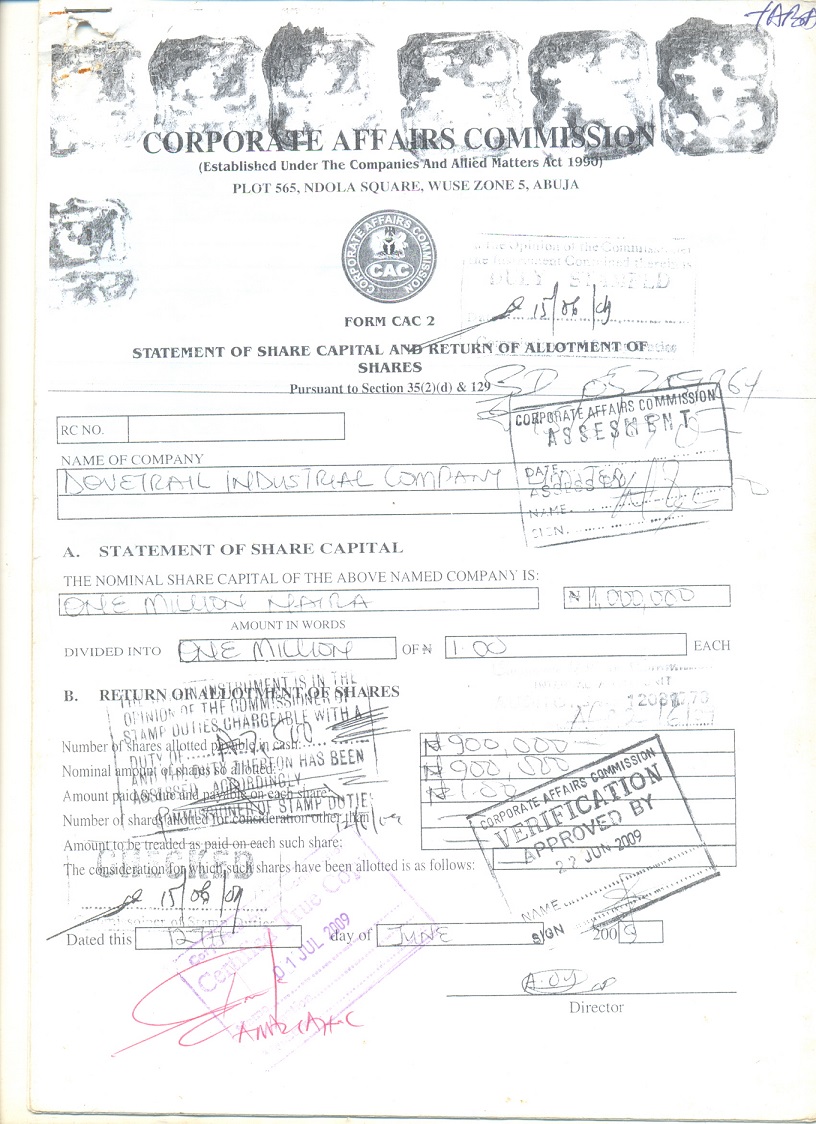 CORPORATE AFFAIRS COMMISSION
(Established Under The Companies And Allied Matters Act 1990)
PLOT 565, NDOLA SQUARE, WUSE ZONE 5, ABUJA
CORPORATE AFFAIRS COMMISSION
CAC
DULY STAMPED
15/06/09
FORM CAC 2
STATEMENT OF SHARE CAPITAL AND RETURN OF ALLOTMENT OF
SHARES
Pursuant to Section 35(2)(d) & 129
CORPORATE AFFAIRS COMMISSION
ASSESMENT
RC NO.
NAME OF COMPANY
DOVETRAIL INDUSTRIAL COMPANY
DATE
ASSESSED
NAME
SIGN
A. STATEMENT OF SHARE CAPITAL
THE NOMINAL SHARE CAPITAL OF THE ABOVE NAMED COMPANY IS:
ONE MILLION NAIRA ₦ 1,000,000
AMOUNT IN WORDS
DIVIDED INTO ONE MILLION OF ₦ 1.00 EACH
B. RETURN OF ALLOTMENT OF SHARES
INSTRUMENT IS IN THE
OPINION OF THE COMMISSIONER OF
STAMP DUTIES CHARGEABLE WITH A
DUTY OF
THEREON HAS BEEN
ACCORDINGLY
COMMISSIONER OF STAMP DUTIES
Number of shares allotted payable in cash: ₦ 900,000
Nominal amount of shares so allotted: ₦ 900,000
Amount paid or due and payable on each share: ₦ 1.00
Number of shares allotted for consideration other than
Amount to be treaded as paid on each such share:
The consideration for which such shares have been allotted is as follows:
CORPORATE AFFAIRS COMMISSION
VERIFICATION
APPROVED BY
22 JUN 2009
NAME
SIGN
CHECKED
15/06/09
Certified True Copy
01 JUL 2009
Dated this 12TH day of JUNE 2009
Director